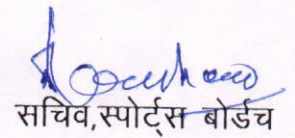 सचिव,स्पोर्ट्स बोर्डच